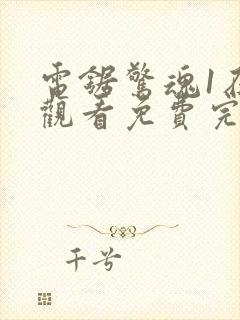 電鋸驚魂1在
觀看免費完
千兮